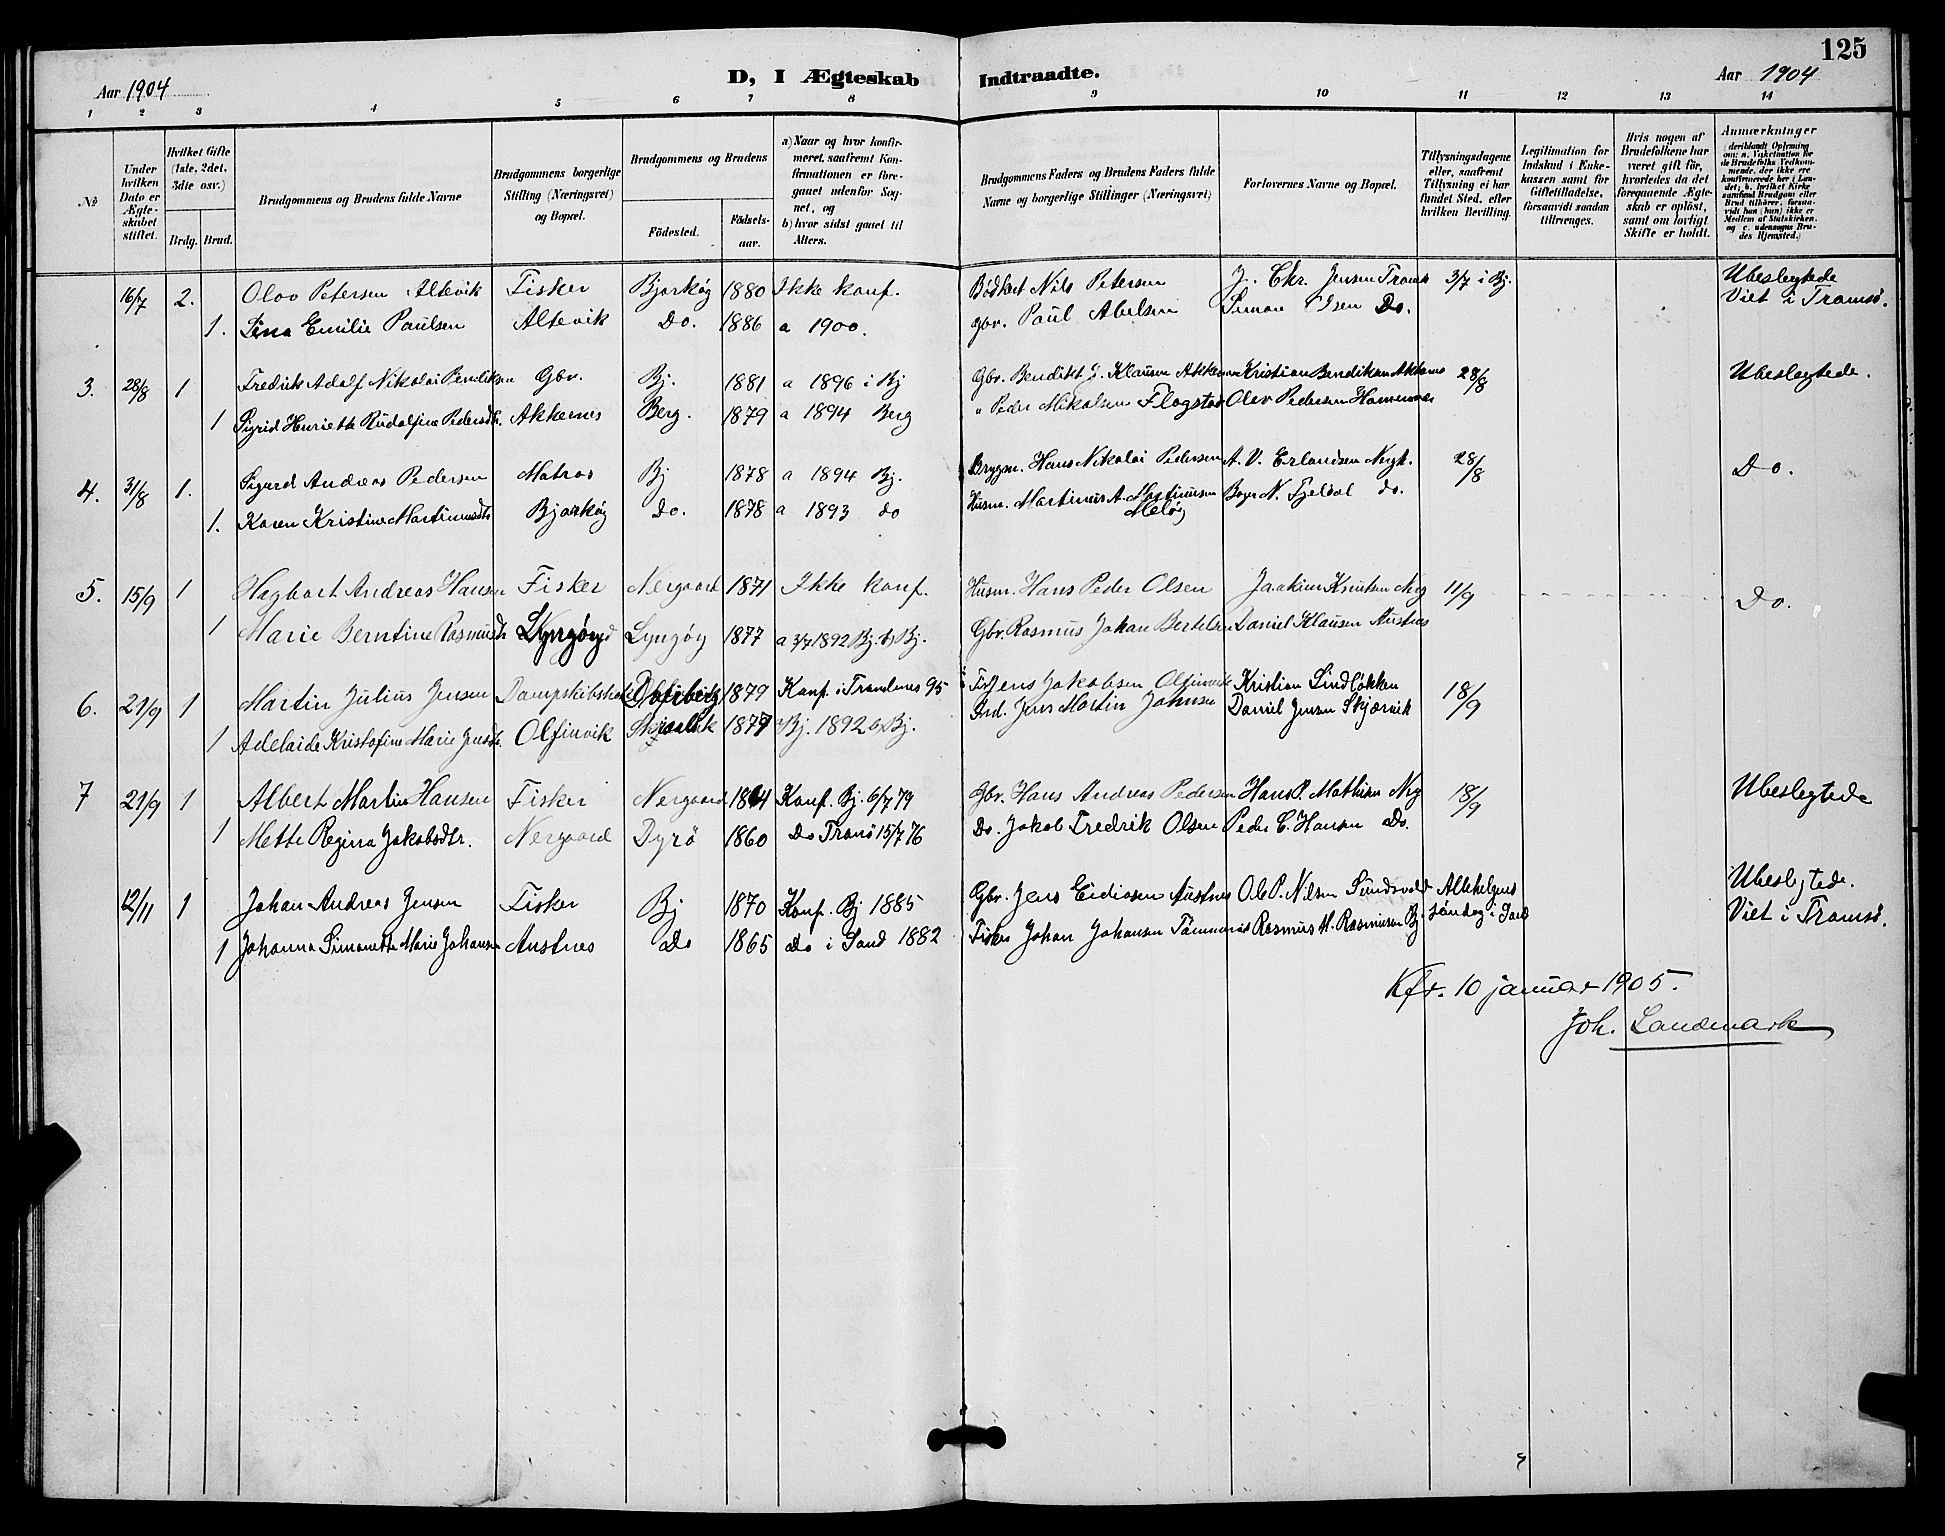 125
Aar 1904
D, I Ægteskab Indtraadte.
Aar 1904
1 2 3 4 5 6 7 8 9 10 11 12 13 14
No
Under hvilken Dato er Ægteskabet stiftet.
Hvilket Gifte (1ste, 2det, 3die osv.)
Brdg. Brud.
Brudgommens og Brudens fulde Navne
Brudgommens borgerlige Stilling (Næringsvei) og Bopæl.
Brudgommens og Brudens
Födested. Födselsaar.
a) Naar og hvor konfirmeret, saafremt Konfirmationen er foregaaet udenfor Sognet, og
b) hvor sidst gaaet til Alters.
Brudgommens Faders og Brudens Faders fulde Navne og borgerlige Stillinger (Næringsvei)
Forlovernes Navne og Bopæl.
Tillysningsdagene eller, saafremt Tillysning ei har fundet Sted, efter hvilken Bevilling.
Legitimation for Indskud i Enkekassen samt for Giftetilladelse, forsaavidt saadan tiltrænges.
Hvis nogen af Brudefolkene har været gift för, hvorledes da det foregaaende Ægteskab er oplöst, samt om lovligt Skifte er holdt.
Anmærkninger
(deriblandt Oplysning om: a. Vakcination for de Brudefolks Vedkommende, der ikke ere konfirmerede her i Landet; b. hvilket Kirkesamfund Brudgom eller Brud tilhörer, forsaavidt han (hun) ikke er Medlem af Statskirken, og c. udensogns Brudes Hjemsted.)
16/7 2. Olov Petersen Altevik Fisker Bjarköy 1880 Ikke konf. Bödker Nils Petersen J. Chr. Jensen Tromsö 3/7 i Bj. Ubeslegtede
1. Lina Emilie Paulsen Altevik Do. 1886 a 1900. Gbr. Paul Abelsen Simon Olsen Do. Viet i Tromsö.
3. 28/8 1 Fredrik Adolf Nikolai Bendiksen Gbr. Bj. 1881 a 1896 i Bj Gbr. Bendikt J. Klausen Akkernes Kristian Bendiksen Akkernes 28/8 Ubeslegtede.
1 Sigrid Henriette Rudolfine Pedersdtr. Akkernes Berg. 1879 a 1894 Berg " Peder Mikalsen Flagstad Olov Pedersen Hamennes
4. 31/8 1. Sigurd Andreas Pedersen Matros Bj 1878 a 1894 Bj. Brygm. Hans Nikolai Pedersen A. V. Erlandsen Nrgt. 28/8 Do.
1. Karen Kristine Martinusdtr Bjarköy Do. 1878 a 1893 do Husm. Martinus A. Martinusen Melöy N. Fjeldal do.
5. 15/9 1 Hagbart Andreas Hansen Fisker Nergaard 1871 Ikke konf. Husm. Hans Peder Olsen Joakim Knutsen Nrg 11/9 Do.
1 Marie Berntine Rasmusdtr Lyngöy 1877 a 3/7 1892 Bj. b) Bj. Gbr. Rasmus Johan Bertelsen Daniel Klausen Austnes
6. 21/9 1 Martin Julius Jensen 1879 Konf. i Trondenes 95 Jens Jakobsen Olfinvik Kristian Lindlökken 18/9
1 Adelaide Kristofine Marie Jensdtr. Olfinvik 1877 Bj. 1892 b) Bj. Ind. Jens Martin Johnsen Daniel Jensen Skjærvik
7 21/9 1 Albert Martin Hansen Fisker Nergaard 1864 Konf. Bj. 6/7 79 Gbr. Hans Andreas Pedersen Hans P. Mathisen Nrg 18/9 Ubeslegtede
1 Mette Regina Jakobsdtr. Nergaard Dyrö 1860 Do Tranö 15/7 76 Do. Jakob Fredrik Olsen Peder C. Hansen Do.
12/11 1 Johan Andreas Jensen Fisker Bj 1870 Konf. Bj 1885 Gbr. Jens Eidissen Austnes Ole P. Nilsen Sundsvold Allehelgens Ubeslegtede.
1 Johanna Simonette Marie Johansen Austnes Do 1865 Do i Sand 1882 Fisker Johan Johansen Tömmernes Rasmus M. Rasmusen Bj. söndag i Sand Viet i Tromsö.
Kfr. 10 januar 1905.
Joh. Landmark